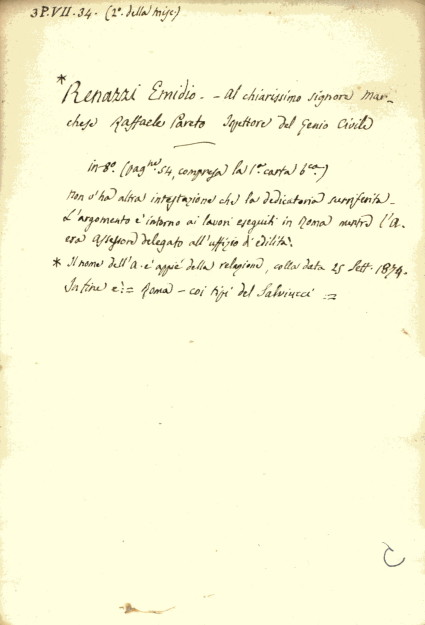 3P.VII.34. (2°. della misc)
* Renazzi Emidio. - Al chiarissimo signore Mar-
chese Raffaele Pareto Ispettore del Genio Civile
in-8°. (pagne. 54, compresa la 1a. carta bca.)
Non v'ha altra intestazione che la dedicatoria surriferita.
L'argomento è intorno ai lavori eseguiti in Roma mentre l'A.
era Assessore delegato all'uffizio di edilità.
* Il nome dell'A. è appiè della relazione, colla data 25 Sett. 1874.
In fine è: = Roma - coi tipi del Salviucci =